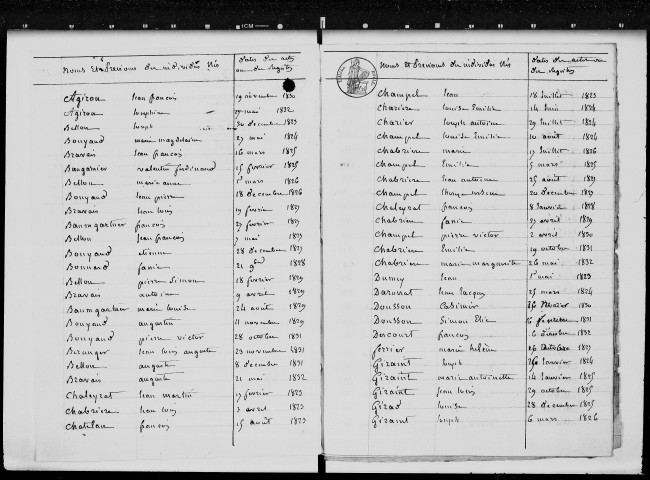 noms et Prenoms des individus Nés
dates des actes ou des Registres
Agiron Jean francois 19 novembre 1830
Agiron Josephine mai 1832
Bellon Joseph 30 decembre 1823
Bouyaud marie magdelaine 27 mai 1824
Bravais Jean francois 16 mars 1825
Baugarnier valentin ferdinand 15 fevrier 1825
Bellon marie anne 1er mars 1826
Bouyaud Jean pierre 18 decembre 1826
Bravais Jean louis 19 fevrier 1827
Baumgartner francois 27 fevrier 1827
Bellon Jean francois 7 mai 1827
Bouyaud etienne 28 decembre 1827
Bonnard fanie 21 9bre 1828
Bellon pierre Simon 18 fevrier 1829
Bravais antoine 9 avril 1829
Baumgartner marie louise 24 août 1829
Bouyaud augustin 11 novembre 1829
Bouyaud pierre victor 28 octobre 1831
Beranger Jean louis auguste 23 novembre 1831
Bellon auguste 8 decembre 1831
Bravais auguste 21 mai 1832
Chaleyrat Jean martin 17 fevrier 1823
Chabriere Jean louis 3 avril 1823
Chatelan francois 15 août 1823
noms et Prenoms des individus Nés
dates des actes ou des Registres
Champel Jean 18 Juillet 1823
Chariere louise Emilie 14 Juin 1824
Charier Joseph antoine 29 Juillet 1824
Champel louise Emilie 10 août 1824
Chabriere marie 17 Juillet 1826
Champel Emilie 5 mars 1825
Chabriere Jean antoine 25 août 1827
Champel 20 decembre 1827
Chaleyrat francois 8 Janvier 1828
Chabriere fanie 27 avril 1829
Champel pierre victor 2 avril 1830
Chabriere Emilie 19 octobre 1831
Chabriere marie marguerite 26 mai 1832
Dumey Jean 1er mai 1823
Darourat Jean Jacques 25 mars 1824
Dousson Casimir 26 fevrier 1830
Dousson Simon Elie 1831
Descourt francois 6 1832
ferrier marie helene 26 octobre 1823
Giraint Joseph 26 Janvier 1824
Giraint marie antoinette 14 Janvier 1825
Giraint Jean louis 29 octobre 1825
Giraud louise 28 decembre 1825
Giraint Joseph 6 mars 1826